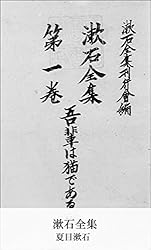 漱石全集刊行會編
漱石全集
第一巻
吾輩は猫である
漱石全集
夏目漱石